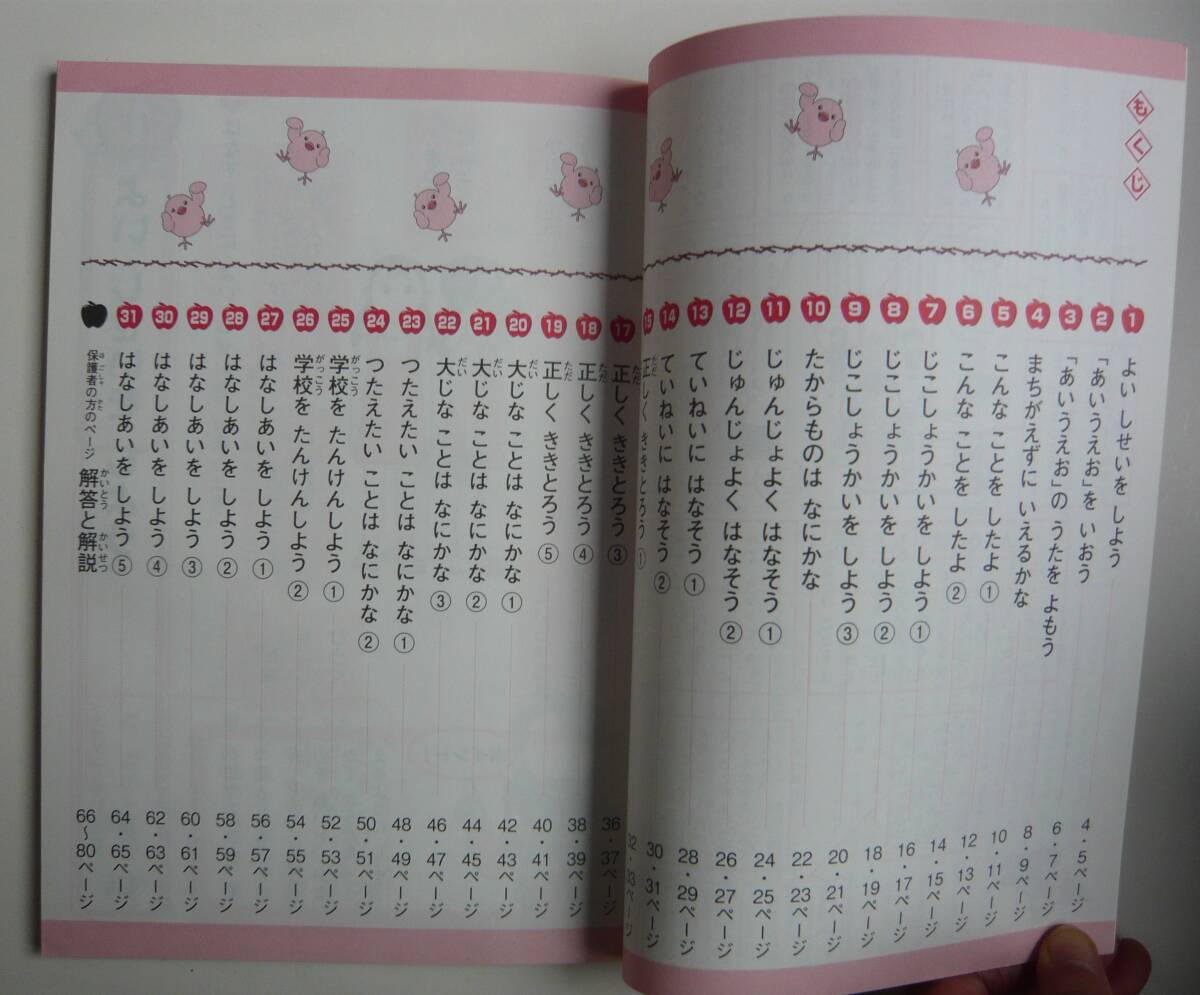 もくじ
1 よい しせいを しよう 4・5ページ
2 「あいうえお」を いおう 6・7ページ
3 「あいうえお」の うたを よもう 8・9ページ
4 まちがえずに いえるかな 10・11ページ
5 こんな ことを したよ ① 12・13ページ
6 こんな ことを したよ ② 14・15ページ
7 じこしょうかいを しよう ① 16・17ページ
8 じこしょうかいを しよう ② 18・19ページ
9 じこしょうかいを しよう ③ 20・21ページ
10 たからものは なにかな 22・23ページ
11 じゅんじょよく はなそう ① 24・25ページ
12 じゅんじょよく はなそう ② 26・27ページ
13 ていねいに はなそう ① 28・29ページ
14 ていねいに はなそう ② 30・31ページ
15 正しく ききとろう ① 32・33ページ
17 正しく ききとろう ③ 36・37ページ
18 正しく ききとろう ④ 38・39ページ
19 正しく ききとろう ⑤ 40・41ページ
20 大じな ことは なにかな ① 42・43ページ
21 大じな ことは なにかな ② 44・45ページ
22 大じな ことは なにかな ③ 46・47ページ
23 つたえたい ことは なにかな ① 48・49ページ
24 つたえたい ことは なにかな ② 50・51ページ
25 学校を たんけんしよう ① 52・53ページ
26 学校を たんけんしよう ② 54・55ページ
27 はなしあいを しよう ① 56・57ページ
28 はなしあいを しよう ② 58・59ページ
29 はなしあいを しよう ③ 60・61ページ
30 はなしあいを しよう ④ 62・63ページ
31 はなしあいを しよう ⑤ 64・65ページ
保護者の方のページ 解答と解説 66〜80ページ